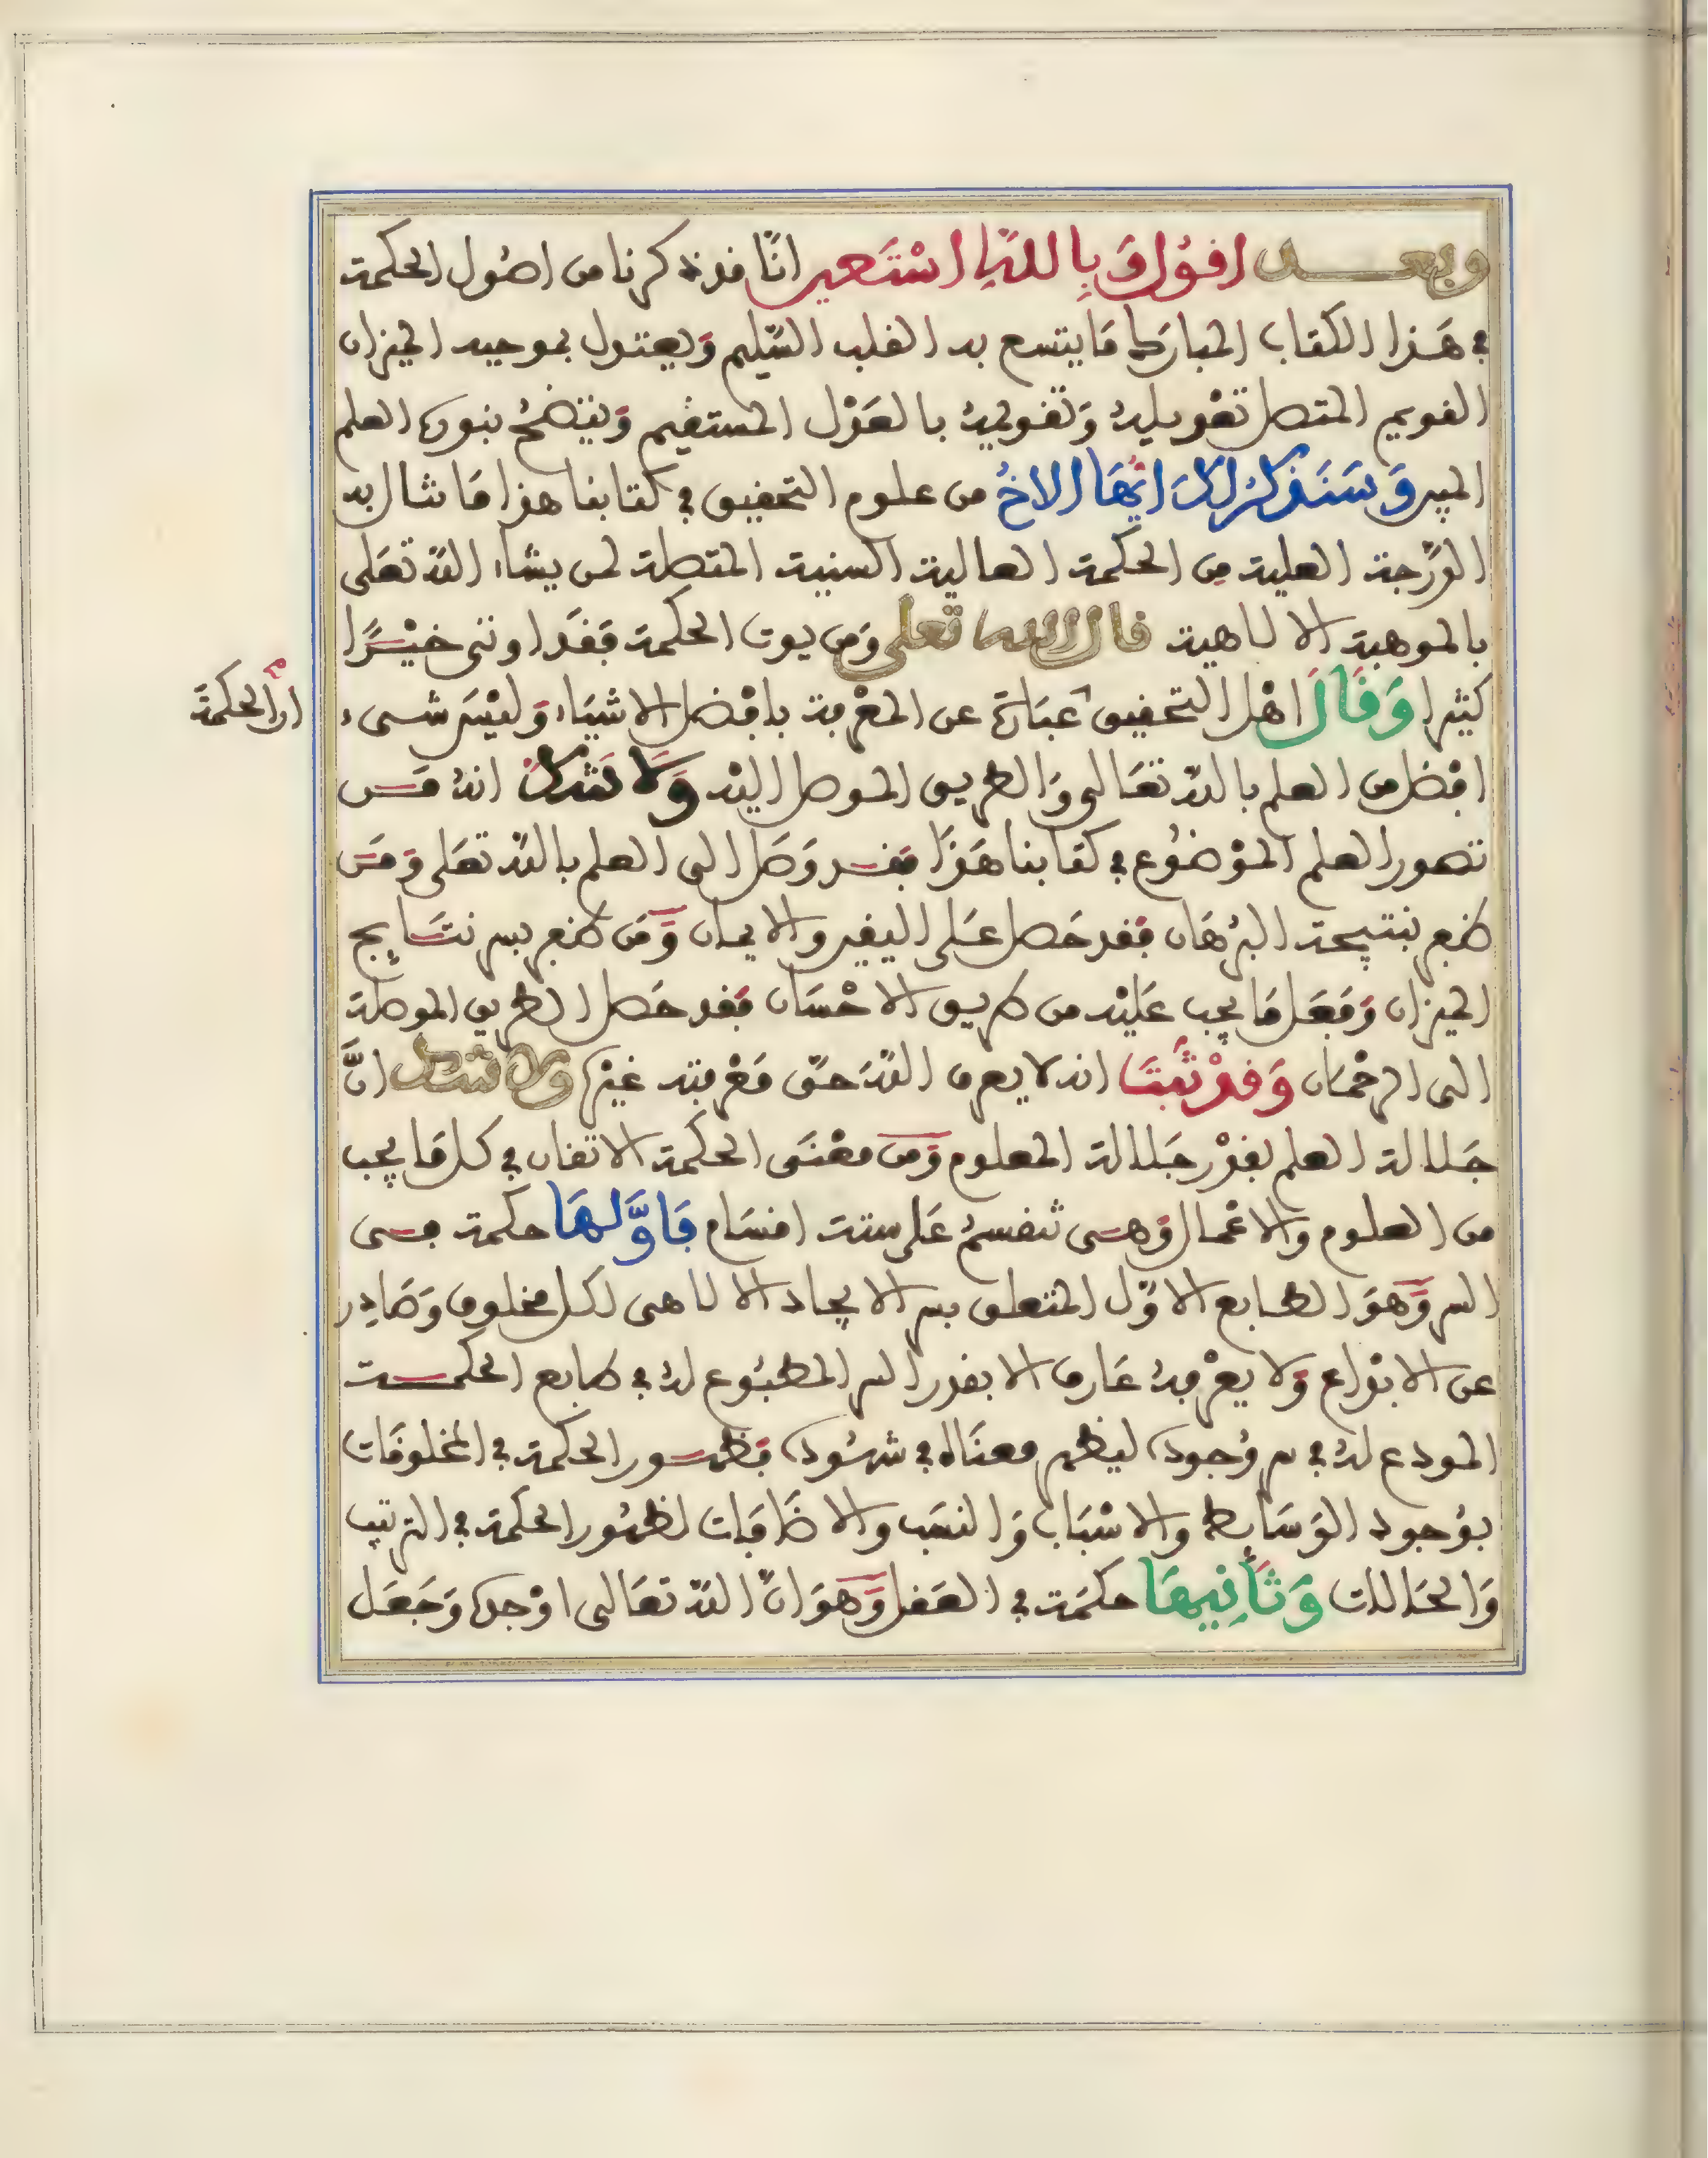 وبعد اقول وَبِاللهِ اسْتَعين انَّا قد ذكرنا من اصُول الحكمة
في هَذا الكتاب المبارَك مَا يتسع به القلب السَّليم وَيعتدل بموجبه الميزان
القويم المتصل تقويله وَتقويمه بالعَدْل المستقيم وَيتضحُ بنوره العلم
المبين وَسَنَذكرُ لكَ ايُّهَا الاخُ من علوم التحقيق في كتابنا هذا مَا شال به
الدَّرجة العلية مِن الحكمة العالية السنية المتصلة لمن يشاء اللهُ تعَلى
بالموهبة الالاهية قال الله تعلى وَمن يوت الحكمة فقَد اوتى خيْرًا
كثيرا وَقَالَ اهْل التحقيق عبَارة عن المعْرفة بافْضل الاشيَاء وَليْسَ شىء
ان الحكمة
افْضل من العلم بالله تعَالى وَالطريق الموصل اليْه وَلا تشكَّ انهُ مَن
تصور العلم الموْضُوع في كتابنا هَذا فقد وَصَل الى العلم بالله تعَلى وَمَن
طبع بنتيجة البرْهَان فقد حَصل عَلى اليقين والايمان وَمَن طبع بسر نتَايج
الميزان وَفعَل مَا يجب عَليْه من طريق الاحْسَان فقد حَصل الطريق الموصلة
الى الرحْمَان وَقدْ ثبَتَ انه لا يعرف اللهَ حَقّ مَعْرفته غيْره ولا تشك انَّ
جَلالة العلم بقدْر جَلالة المعلوم وَمن معْنَى الحكمة الاتقان في كل مَا يجب
من العلوم والاعْمال وَهى تنقسمُ عَلى ستة اقسَام فَاوَّلهَا حكمة في
السر وَهوَ الطابع الاوَّل المتعلق بسر الايجاد الالاهى لكل مخلوق وَصَادر
عن الابْداع وَلا يعْرفهُ عَارف الا بقدر السر المطبُوع لهُ في طابع الحكمة
المودع لهُ في سر وُجوده ليظهر معنَاه في شهُوده فظهور الحكمة في المخلوقَات
بوُجود الوَسَايط والاسْبَاب وَالنسَب والاضَافَات لظهُور الحكمة في الترتيب
وَالحَالات وَثَانِيهَا حكمَة في العَقل وَهوَ انَّ اللهَ تعَالى اوْجده وَجَعَل